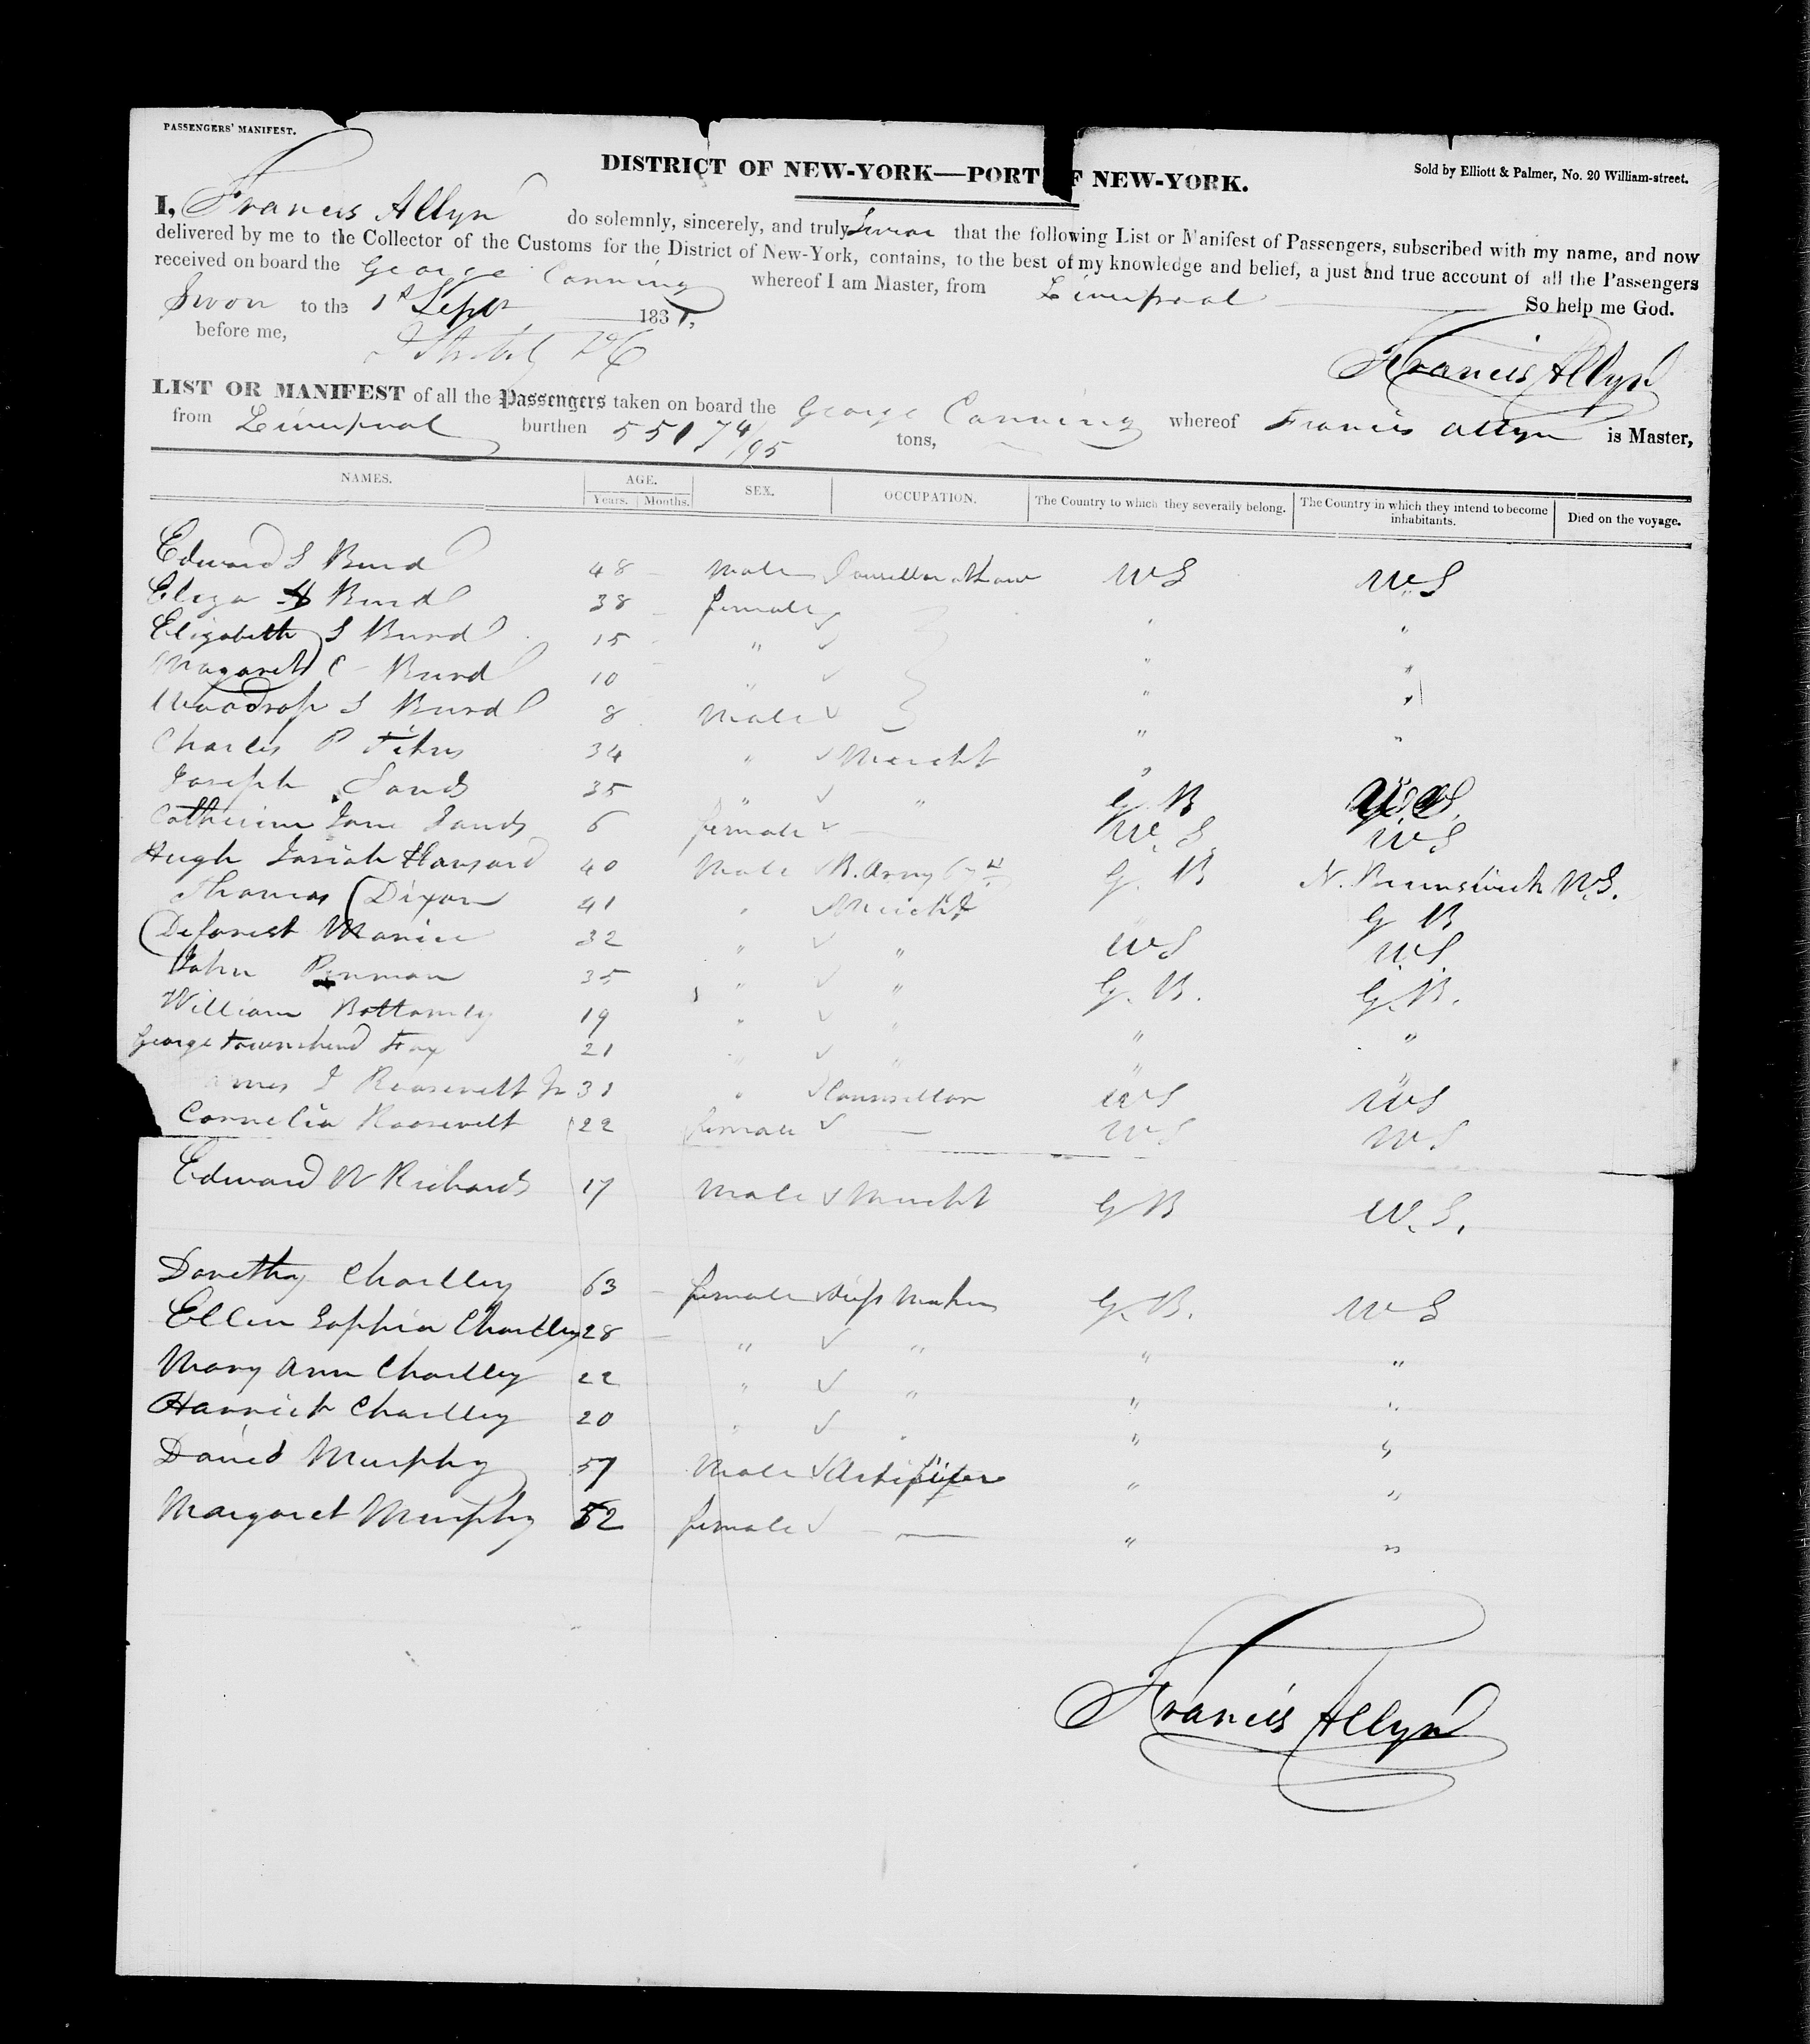 PASSENGERS' MANIFEST.
DISTRICT OF NEW-YORK—PORT OF NEW-YORK.
Sold by Elliott & Palmer, No. 20 William-street.
I, Francis Allyn do solemnly, sincerely, and truly Swear that the following List or Manifest of Passengers, subscribed with my name, and now
delivered by me to the Collector of the Customs for the District of New-York, contains, to the best of my knowledge and belief, a just and true account of all the Passengers
received on board the George Canning whereof I am Master, from Liverpool So help me God.
Swon to the 1st Sept 1831,
before me,
Francis Allyn
LIST OR MANIFEST of all the Passengers taken on board the George Canning whereof Francis Allyn is Master,
from Liverpool burthen 551 74/95 tons,
NAMES. AGE. SEX. OCCUPATION. The Country to which they severally belong. The Country in which they intend to become inhabitants. Died on the voyage.
Years. Months.
Edward S Burd 48 Male Counsellor at Law U S U S
Eliza H Burd 38 female " "
Elizabeth S Burd 15 " " "
Magaret C Burd 10 " " "
Woodrop S Burd 8 Male " "
Charles P 34 " Mercht "
Joseph Sands 35 " " G. B U.S.
Catherine Jane Sands 6 female — U S U S
Hugh Josiah Hansard 40 Male R. Army G. B N. Brunswick N.S.
Thomas Dixon 41 " Mercht G B
Deforest Manice 32 " " U S U S
John Penman 35 " " G. B. G. B.
William Bottomley 19 " " " "
George Townshend Fox 21 " " " "
ames I Roosevelt Jr 31 " Counsellor U S U S
Cornelia Roosevelt 22 female — U S U S
Edward W Richards 17 Male Mercht G B U. S.
Dorothy Chorlley 63 female G. B. U S
Ellen Sophia Chorlley 28 " " " "
Mary Ann Chorlley 22 " " " "
Harriet Chorlley 20 " " " "
David Murphy 57 Male Artificer " "
Margaret Murphy 52 female — " "
Francis Allyn